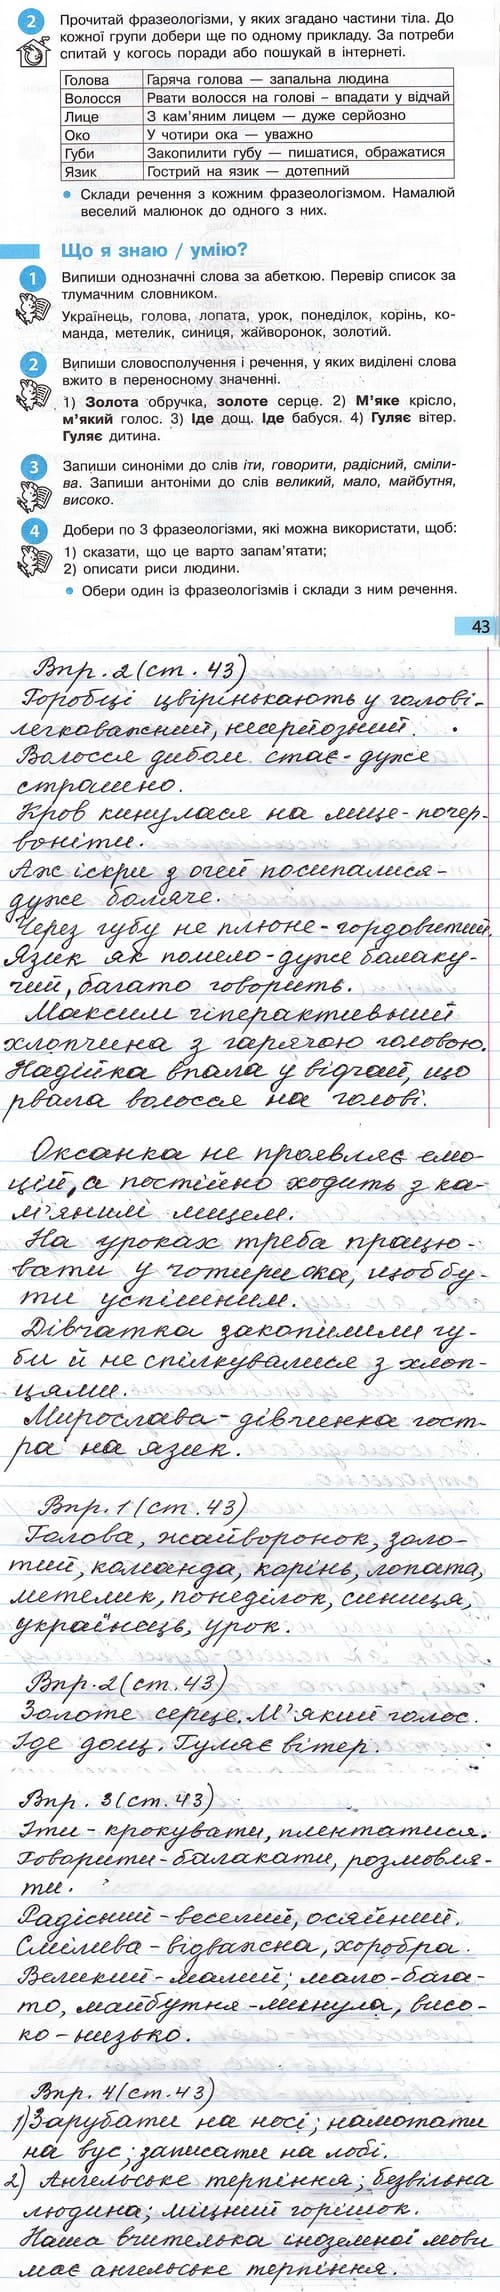 2 Прочитай фразеологізми, у яких згадано частини тіла. До
кожної групи добери ще по одному прикладу. За потреби
спитай у когось поради або пошукай в інтернеті.
Голова Гаряча голова — запальна людина
Волосся Рвати волосся на голові – впадати у відчай
Лице З кам'яним лицем — дуже серйозно
Око У чотири ока — уважно
Губи Закопилити губу — пишатися, ображатися
Язик Гострий на язик — дотепний
• Склади речення з кожним фразеологізмом. Намалюй
веселий малюнок до одного з них.
Що я знаю / умію?
1 Випиши однозначні слова за абеткою. Перевір список за
тлумачним словником.
Українець, голова, лопата, урок, понеділок, корінь, ко-
манда, метелик, синиця, жайворонок, золотий.
2 Випиши словосполучення і речення, у яких виділені слова
вжито в переносному значенні.
1) Золота обручка, золоте серце. 2) М'яке крісло,
м'який голос. 3) Іде дощ. Іде бабуся. 4) Гуляє вітер.
Гуляє дитина.
3 Запиши синоніми до слів іти, говорити, радісний, сміли-
ва. Запиши антоніми до слів великий, мало, майбутня,
високо.
4 Добери по 3 фразеологізми, які можна використати, щоб:
1) сказати, що це варто запам'ятати;
2) описати риси людини.
• Обери один із фразеологізмів і склади з ним речення.
43
Впр. 2 (ст. 43)
Горобці цвірінькають у голові-
легковажний, несерйозний.
Волосся дибом стає - дуже
страшно.
Кров кинулася на лице - почер-
воніти.
Аж іскри з очей посипалися-
дуже боляче.
Через губу не плюне - гордовитий.
Язик як помело - дуже балаку-
чий, багато говорить.
Максим гіперактивний
хлопчина з гарячою головою.
Надійка впала у відчай, що
рвала волосся на голові.
Оксанка не проявляє емо-
цій, а постійно ходить з ка-
м'яним лицем.
На уроках треба працю-
вати у чотири ока, щоб бу-
ти успішним.
Дівчатка закопилили гу-
би й не спілкувалися з хлоп-
цями.
Мирослава - дівчинка гост-
ра на язик.
Впр. 1 (ст. 43)
Голова, жайворонок, золо-
тий, команда, корінь, лопата,
метелик, понеділок, синиця,
українець, урок.
Впр. 2 (ст. 43)
Золоте серце. М'який голос.
Іде дощ. Гуляє вітер.
Впр. 3 (ст. 43)
Іти - крокувати, плентатися.
Говорити - балакати, розмовля-
ти.
Радісний - веселий, осяйний.
Смілива - відважна, хоробра.
Великий - малий; мало - бага-
то, майбутня - минула, висо-
ко - низько.
Впр. 4 (ст. 43)
1) Зарубати на носі; намотати
на вус; записати на лобі.
2) Ангельське терпіння; безвільна
людина; міцний горішок.
Наша вчителька іноземної мови
має ангельське терпіння.